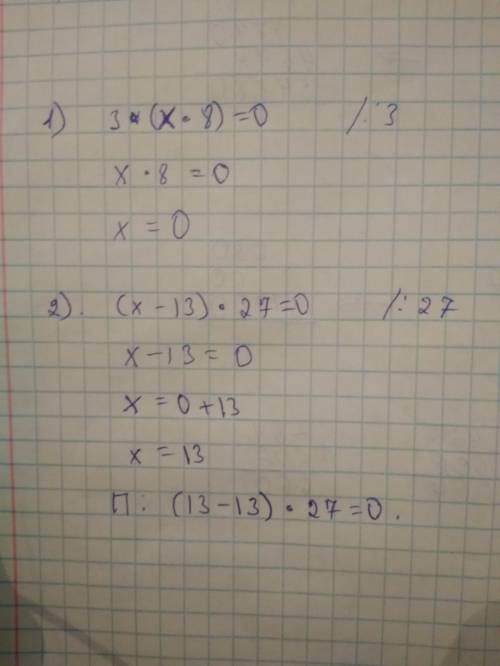 1) 3 • (x • 8) = 0 /: 3
x • 8 = 0
x = 0
2). (x - 13) • 27 = 0 /: 27
x - 13 = 0
x = 0 + 13
x = 13
П: (13 - 13) • 27 = 0.